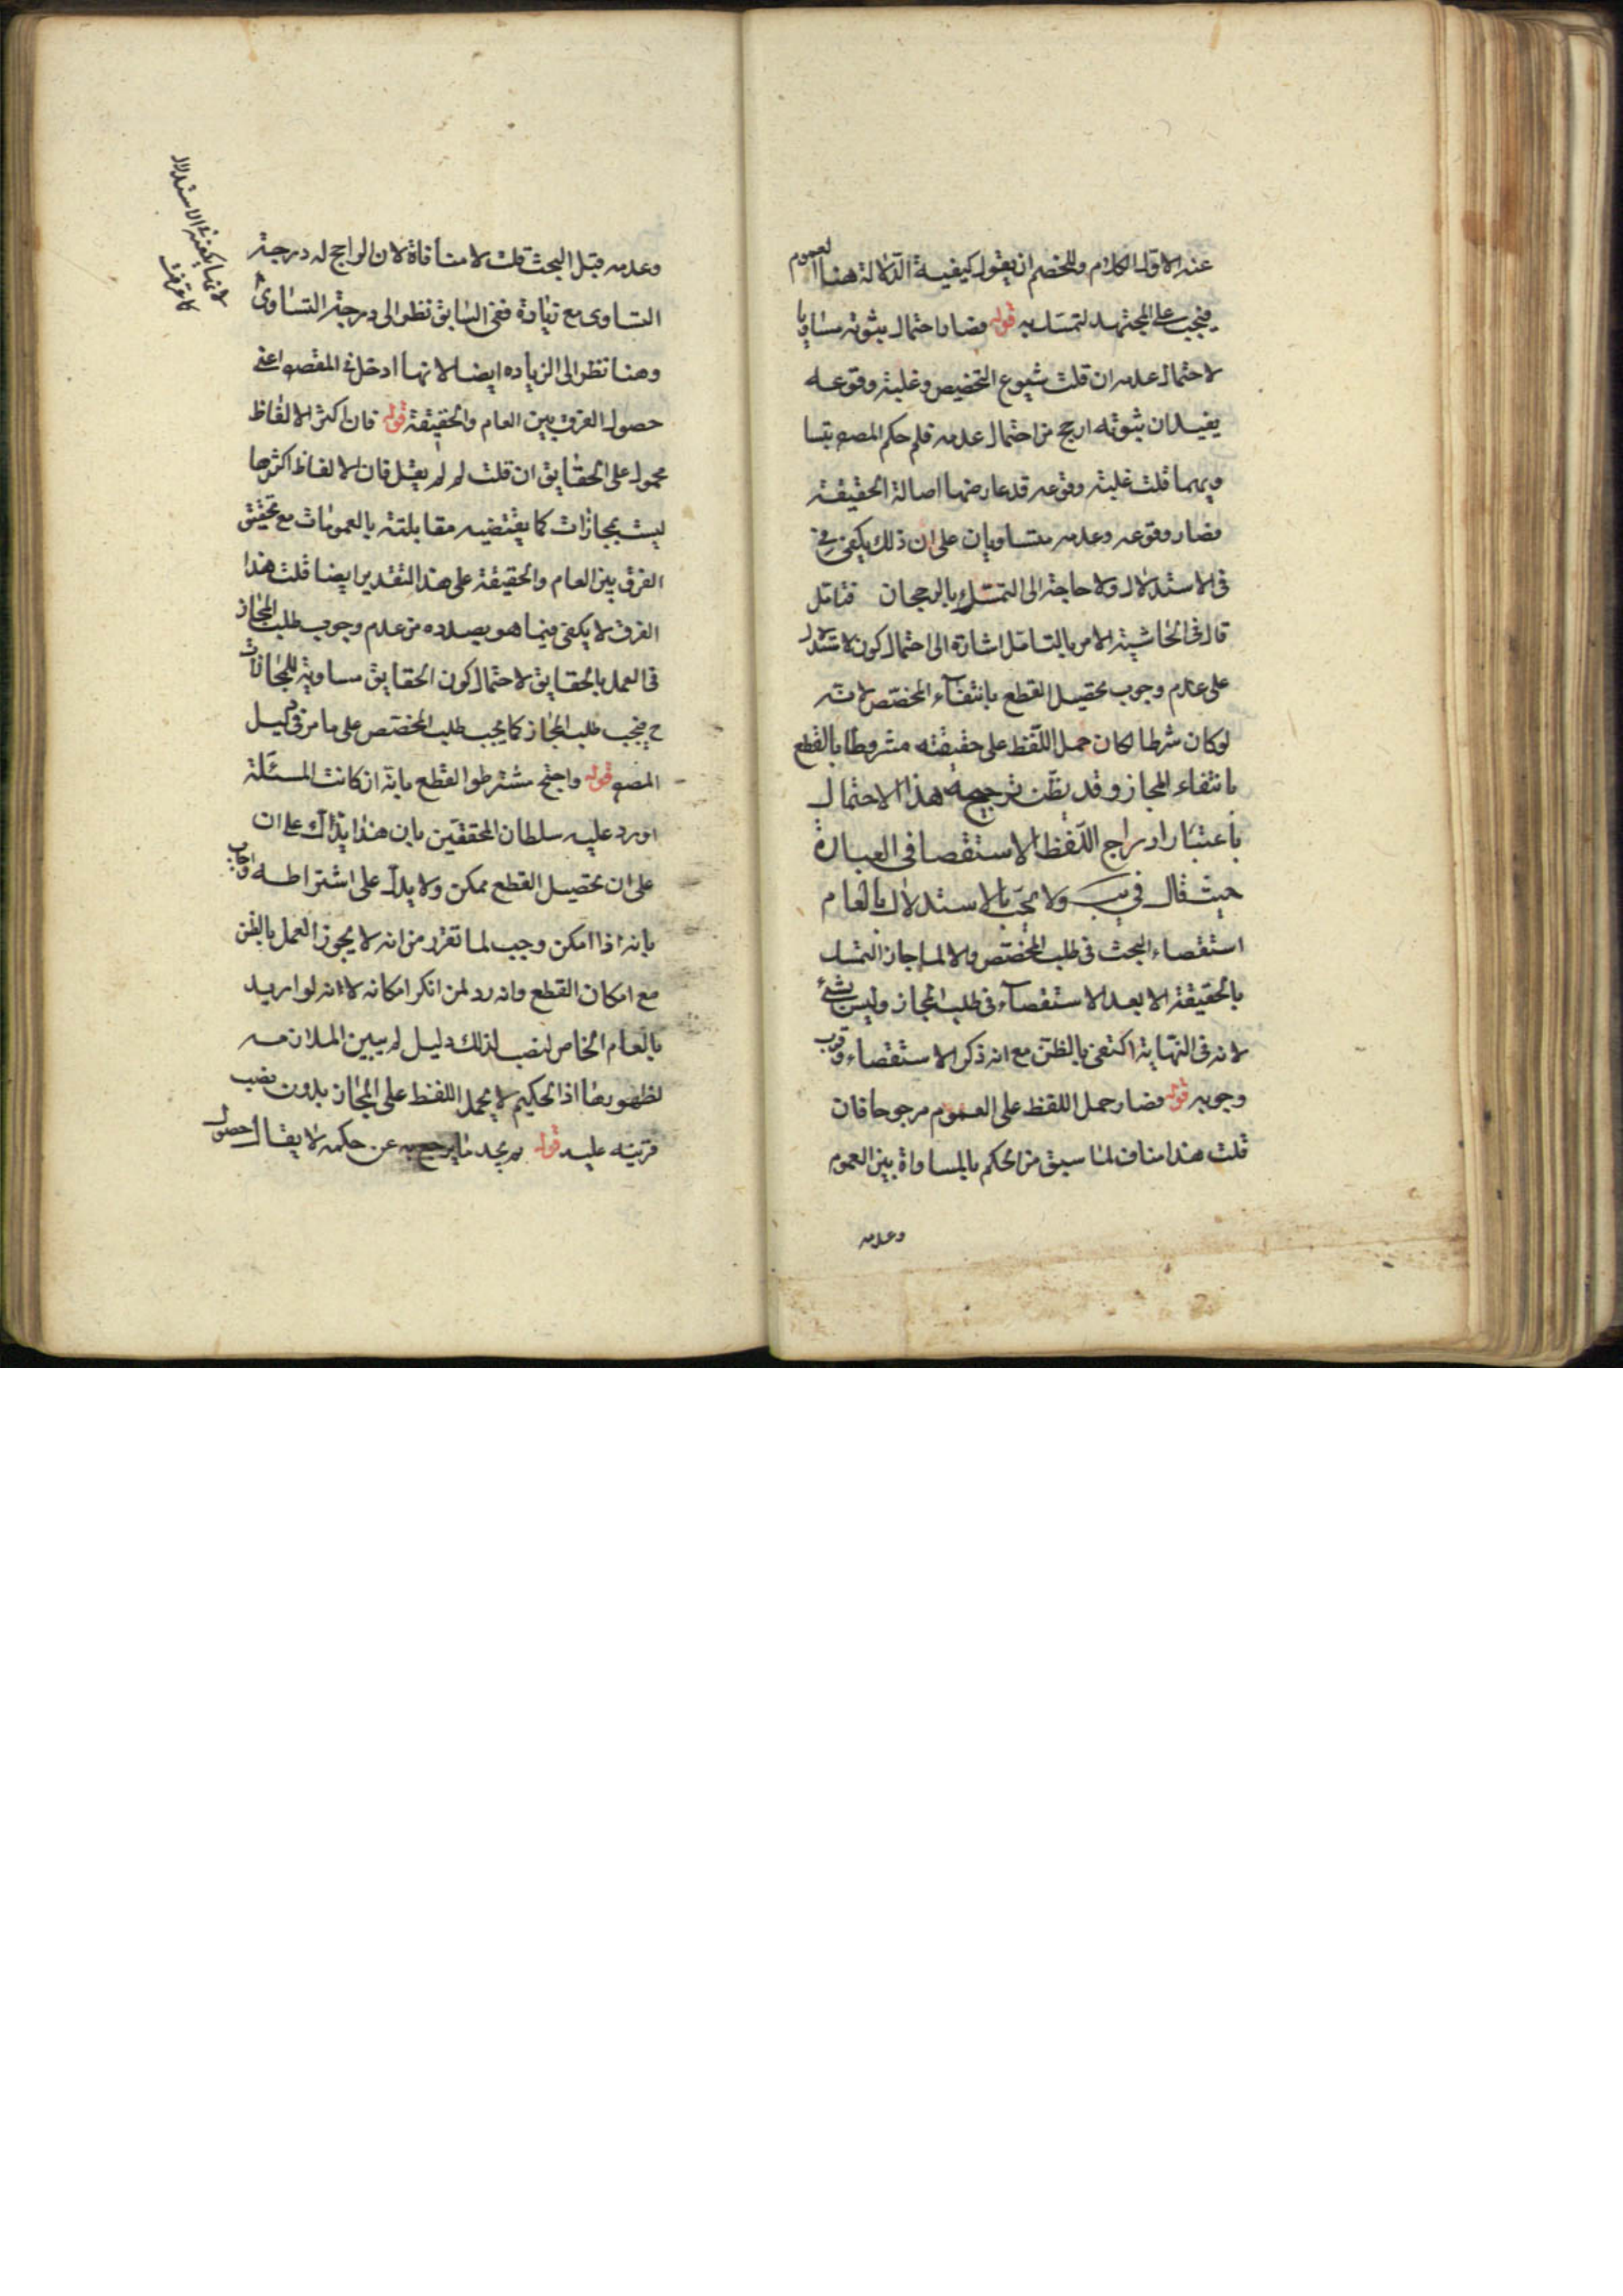 عنه الاول الكلام وللخصم ان يقول كيفية الدلالة هنا العموم
فيجب على المجتهد لتمسك به قوله فصار احتمال ثبوته مساويا
لاحتمال عدمه ان قلت شيوع التخصيص وغلبته وقوعه
يفيد ان ثبوته ارجح من احتمال عدمه فلم حكم المصه بتسا
ويهما قلت غلبته وقوعه قد عارضها اصالة الحقيقة
فصار وقوعه وعدمه متساويان على ان ذلك يكفى
فى الاستدلال ولا حاجة الى التمسك بالرجحان فتامل
قال فى الحاشية الامر بالتامل اشارة الى احتمال كون الاستدلال
على عدم وجوب تحصيل القطع بانتفاء المخصص لانه
لو كان شرطا لكان حمل اللفظ على حقيقته مشروطا بالقطع
بانتفاء المجاز وقد يظن ترجيحه هذا الاحتمال
باعتبار ادراج اللفظ الاستقصا فى العبارة
حيث قال فى يب ولا يجب بالاستدلال بالعام
استقصاء البحث فى طلب المخصص والا لما جاز التمسك
بالحقيقة الا بعد الاستقصاء فى طلب المجاز وليس بشئ
لانه فى النهاية اكتفى بالظن مع انه ذكر الاستقصاء وقرب
وجوبه قوله فصار حمل اللفظ على العموم مرجوحا فان
قلت هذا مناف لما سبق من الحكم بالمساواة بين العموم
وعدمه
وعدمه قبل البحث قلت لا منافاة لان الراجح له درجة
التساوى مع زيادة ففى السابق نظر الى درجة التساوى
لانها يكفيه الاستدلال
كما عرفت
وهنا نظر الى الزياده ايضا لانها ادخل فى المقصود اعنى
حصول الفرق بين العام والحقيقة قوله فان اكثر الالفاظ
محمول على الحقايق ان قلت لم لم يقل فان الالفاظ اكثرها
ليست بمجازات كما يقتضيه مقابلته بالعمومات مع تحقق
الفرق بين العام والحقيقة على هذا التقدير ايضا قلت هذا
الفرق لا يكفى فيما هو بصدده من عدم وجوب طلب المجاز
فى العمل بالحقايق لاحتمال كون الحقايق مساوية للمجازات
ح فيجب طلب المجاز كما يجب طلب المخصص على ما مر فى دليل
المصه قوله واحتج مشترطوا القطع بانه ان كانت المسئلة
اورد عليه سلطان المحققين بان هذا يدل على ان
على ان تحصيل القطع ممكن ولا يدل على اشتراطه واجاب
بانه اذا امكن وجب لما تقرر من انه لا يجوز العمل بالظن
مع امكان القطع وانه رد لمن انكر امكانه لانه لو اريد
بالعام الخاص لنصب لذلك دليل لم يبين الملازمه
لظهورها اذ الحكيم لا يحمل اللفظ على المجاز بدون نصب
قرينه عليه قوله ما يرجع به عن حكمه لا يقال حصول